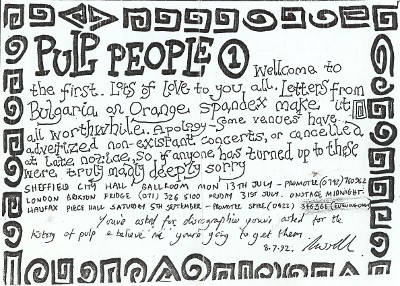 PULP PEOPLE 1
Welcome to
the first. Lots of love to you all. Letters from
Bulgaria on Orange spandex make it
all worthwhile. Apology - Some venues have
advertized non-existant concerts, or cancelled
at late notice, so, if anyone has turned up to these
were truly madly deeply sorry
SHEFFIELD CITY HALL BALLROOM MON 13TH JULY - PROMOTE
LONDON BRIXTON FRIDGE (071) 326 5100 FRIDAY 31ST JULY. ONSTAGE MIDNIGHT.
HALIFAX PIECE HALL SATURDAY 5TH SEPTEMBER - PROMOTE (0422)
Youve asked for discographies youve asked for the
history of pulp & believe me youre going to get them.
8.7.92.